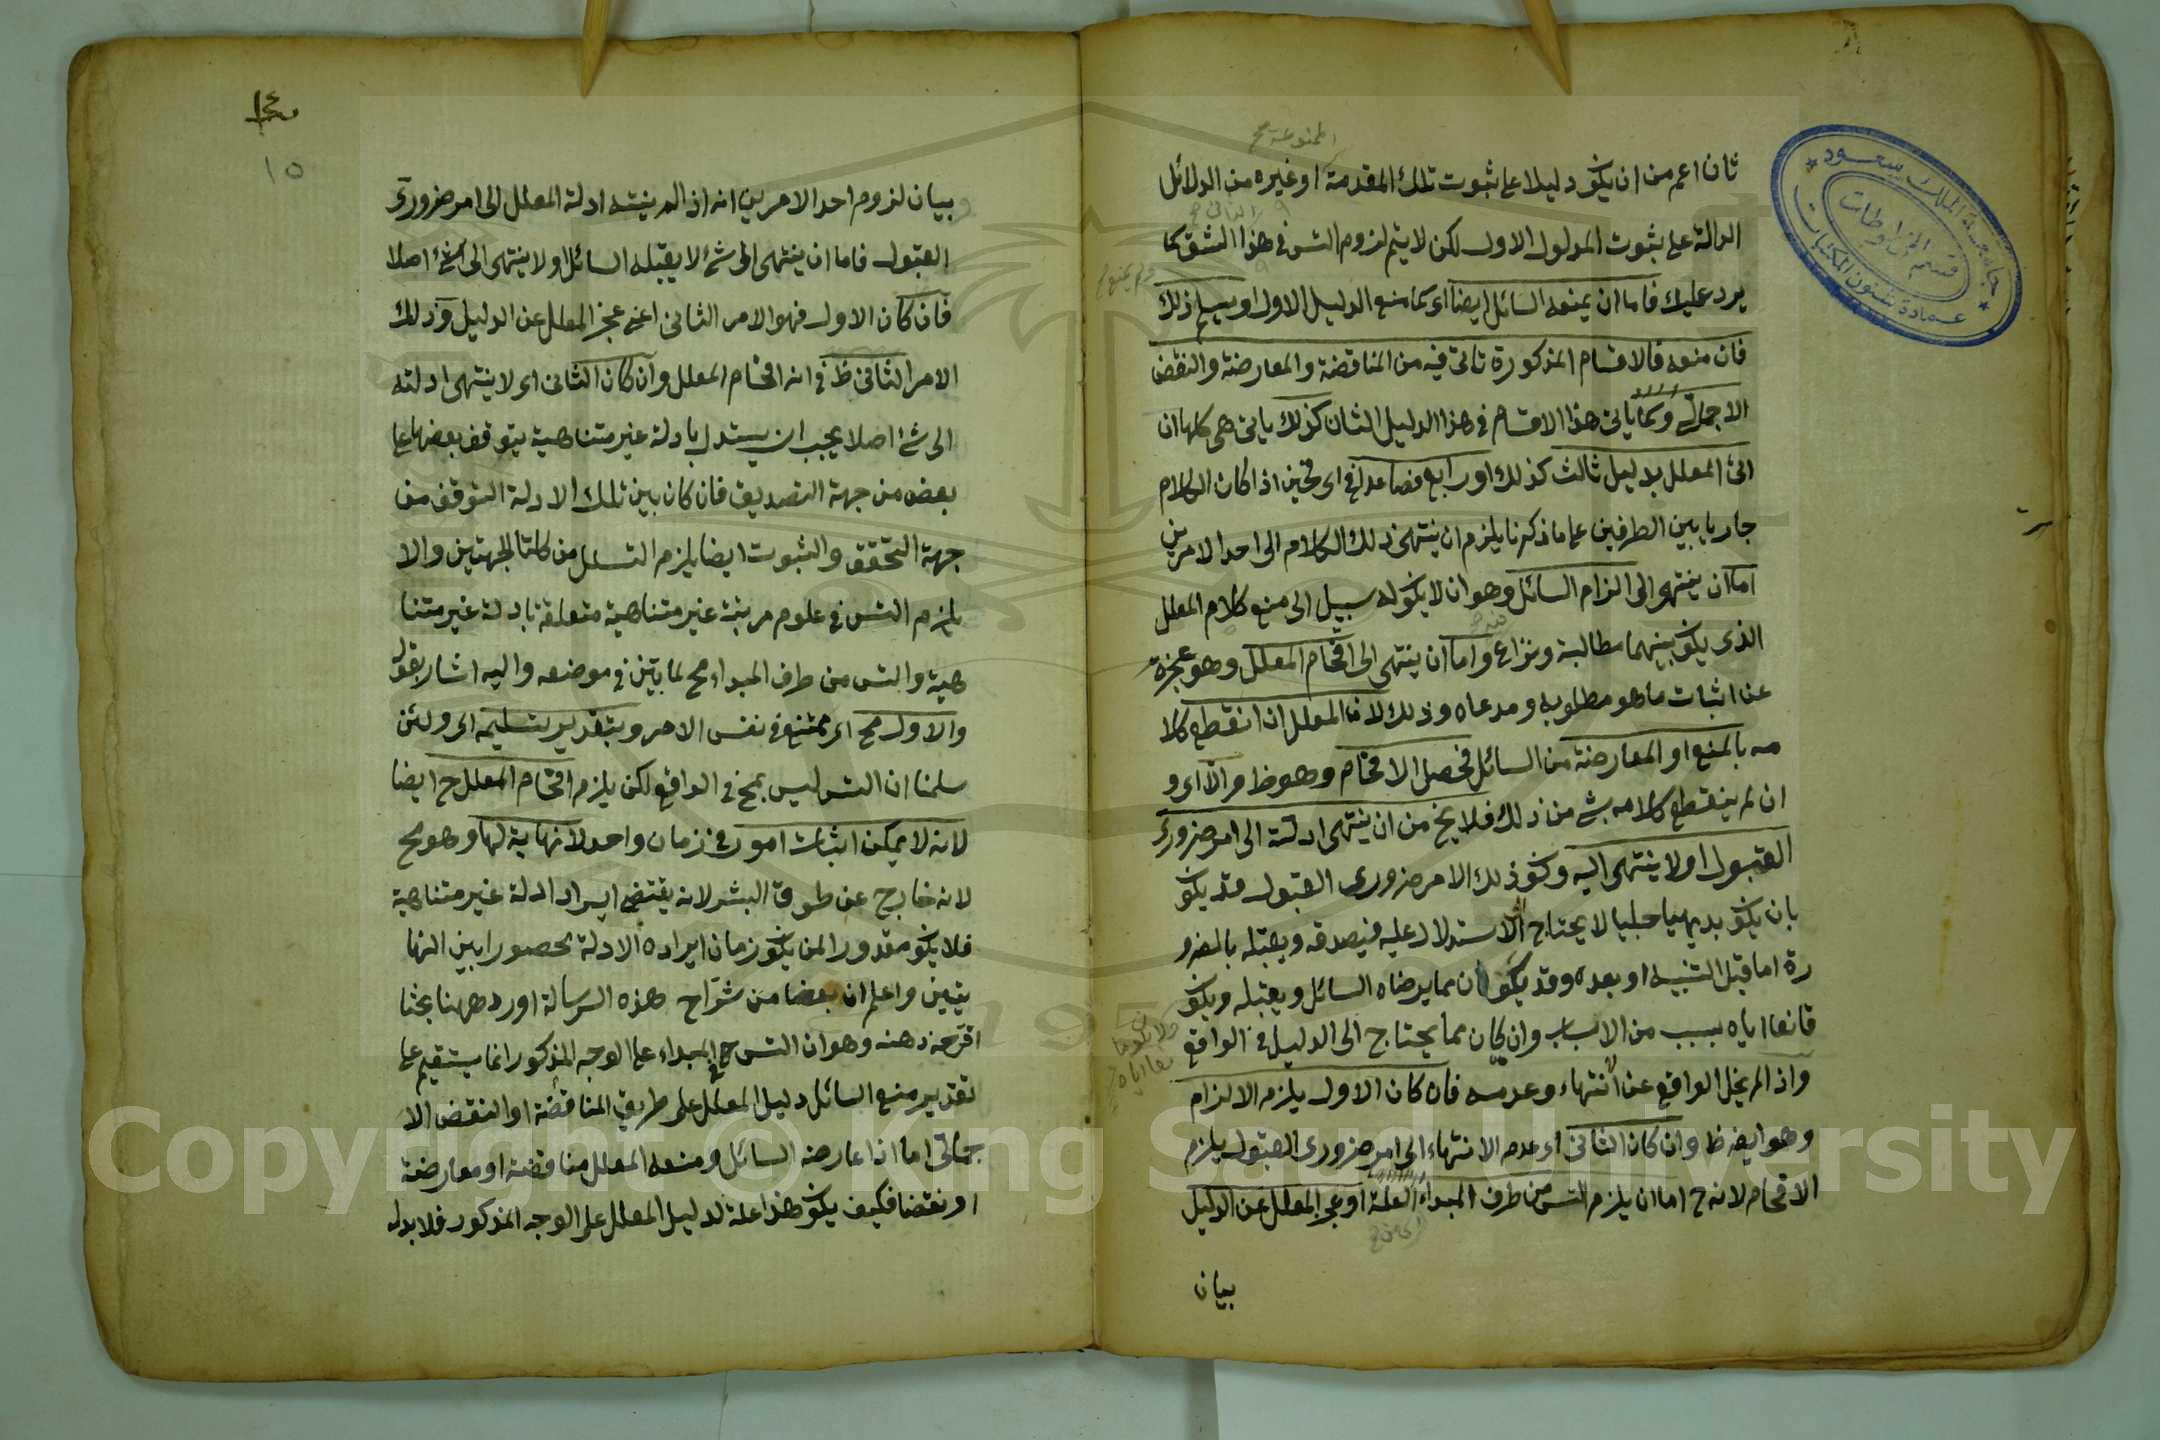 ثان اعم من ان يكون دليلا على ثبوت تلك المقدمة او غيره من الدلائل
الممنوعة صح
الدالة على ثبوت المدلول الاول لكن لا يتم لزوم التس في هذا الشق كما
يرد عليك فاما ان يمنعه السائل ايضا اى كما منع الدليل الاول او يسلم ذلك
فان منعه فالاقسام المذكورة تاتى فيه من المناقضة والمعارضة والنقض
الاجمالى وكما ياتى هذا الاقسام في هذا الدليل الثان كذلك ياتى هى كلها ان
اتى المعلل بدليل ثالث كذلك او رابع فصاعدا فح اى فحين اذا كان الكلام
جاريا بين الطرفين على ما ذكرنا يلزم ان ينتهى ذلك الكلام الى احد الامرين
اما ان ينتهى الى الزام السائل وهو ان لا يكون له سبيل الى منع كلام المعلل
الذى يكون بينهما مطالبة ونزاع واما ان ينتهى الى افحام المعلل وهو عجزه
عن اثبات ما هو مطلوبه ومدعاه وذلك لان المعلل ان انقطع كلا
مه بالمنع او المعارضة من السائل فحصل الافحام وهو ظ والا اى و
ان لم ينقطع كلامه بشئ من ذلك فلا يخ من ان ينتهى ادلته الى امر ضرورى
القبول او لا ينتهى اليه وكون ذلك الامر ضرورى القبول قد يكون
بان يكون بديهيا جليا لا يحتاج الاستدلال عليه فيصدقه ويقبله بالضرو
رة اما قبل التنبيه او بعده وقد يكون ان مما يرضاه السائل ويقبله ويكون
قانعا اياه بسبب من الاسباب وان كان مما يحتاج الى الدليل في الواقع
واذ لم يخل الواقع عن انتهاء وعدمه فان كان الاول يلزم الالزام
وهو ايضا ظ وان كان الثانى اى عدم الانتهاء الى امر ضرورى القبول يلزم
الافحام لانه ح اما ان يلزم التس من طرف المبداء العلة او عجز المعلل عن الدليل
بيان
جامعة الملك سعود
قسم المخطوطات
عمادة شئون المكتبات
١٤
١٥
بيان لزوم احد الامرين انه اذا لم ينته ادلة المعلل الى امر ضرورى
القبول فاما ان ينتهى الى شئ لا يقبله السائل او لا ينتهى الى شئ اصلا
فان كان الاول فهو الامر الثانى اعنى عجز المعلل عن الدليل وذلك
الامر الثانى ظ في انه افحام المعلل وان كان الثانى اى لا ينتهى ادلته
الى شئ اصلا يجب ان يستدل بادلة غير متناهية يتوقف بعضها على
بعض من جهة التصديق فان كان بين تلك الادلة التوقف من
جهة التحقق والثبوت ايضا يلزم التسلل من كلتا الجهتين والا
يلزم التس في علوم مرتبة غير متناهية متعلقة بادلة غير متنا
هية والتس من طرف المبداء مح لما بين في موضعه واليه اشار بقوله
والاول مح اى ممتنع في نفس الامر وبتقدير تسليمه اى ولئن
سلمنا ان التس ليس بمح في الواقع لكن يلزم افحام المعلل ح ايضا
لانه لا يمكن اثبات امور في زمان واحد لا نهاية لها وهو مح
لانه خارج عن طوق البشر لانه يقتضى ايراد ادلة غير متناهية
فلا يكون مقدورا لمن يكون زمان ايراده الادلة محصورا بين النها
يتين واعلم ان بعضا من شراح هذه الرسالة اورد ههنا بحثا
اقترحه ذهنه وهو ان التس في المبداء على الوجه المذكور انما يستقيم على
تقدير منع السائل دليل المعلل على طريق المناقضة او النقض الا
جمالى اما اذا عارضه السائل ومنعه المعلل مناقضة او معارضة
او نقضا فكيف يكون هذا علة لدليل المعلل على الوجه المذكور فلا بد له
Copyright © King Saud University